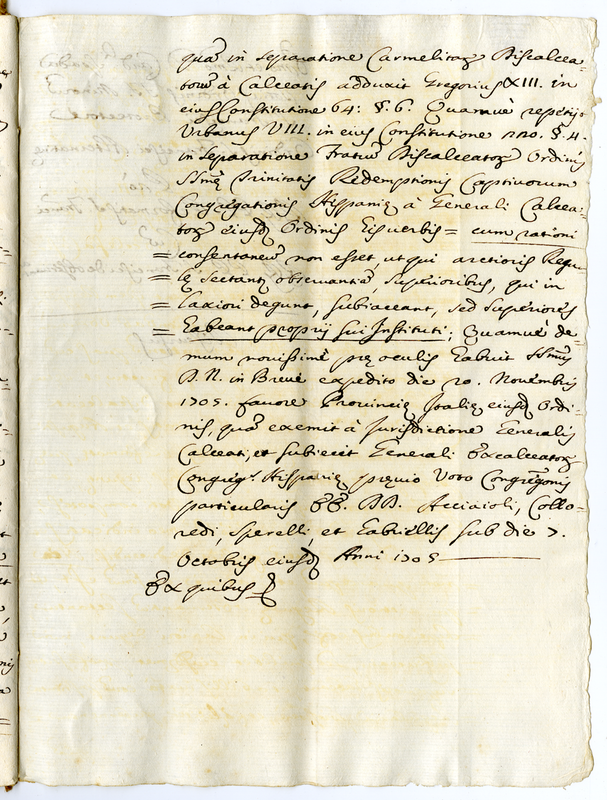 quã in separatione Carmelitaꝝ Discalcea-
torũ à Calceatis adduxit Gregorius XIII. in
eius Constitutione 64: §. 6. Quamuè repetijt
Urbanus VIII. in eius Constitutione 120. §. 4.
in separatione Fratrũ Discalceatoꝝ Ordinis
SSmę Trinitatis Redemptionis Captivorum
Congregationis Hispanię à Generali Calcea-
toꝝ eiusd Ordinis Eisverbis = cum rationi
= consentaneũ non esset ut qui arctioris Regu
= lę sectantꝫ observantiã, superioribus, qui in
= laxiori degunt, subiaceant, sed superiores
= habeant proprij sui Instituti; Quamuè de-
mum novissimè prę oculis habuit SSmus
D. N. in Breve expedito die 20. Novembris
1705. favore Provincię Italię eiusd Ordi-
nis, quã exemit à Jurisdictione Generalis
Calceati, et subiecit Generali Excalceatoꝝ
Congreg.s Hispanię pręvio Voto Congregõnis
particularis EE. DD. Acciaioli, Collo-
redi, Sperelli, et Gabriellis sub die 7.
Octobris eiusd Anni 1705
Ex quibus